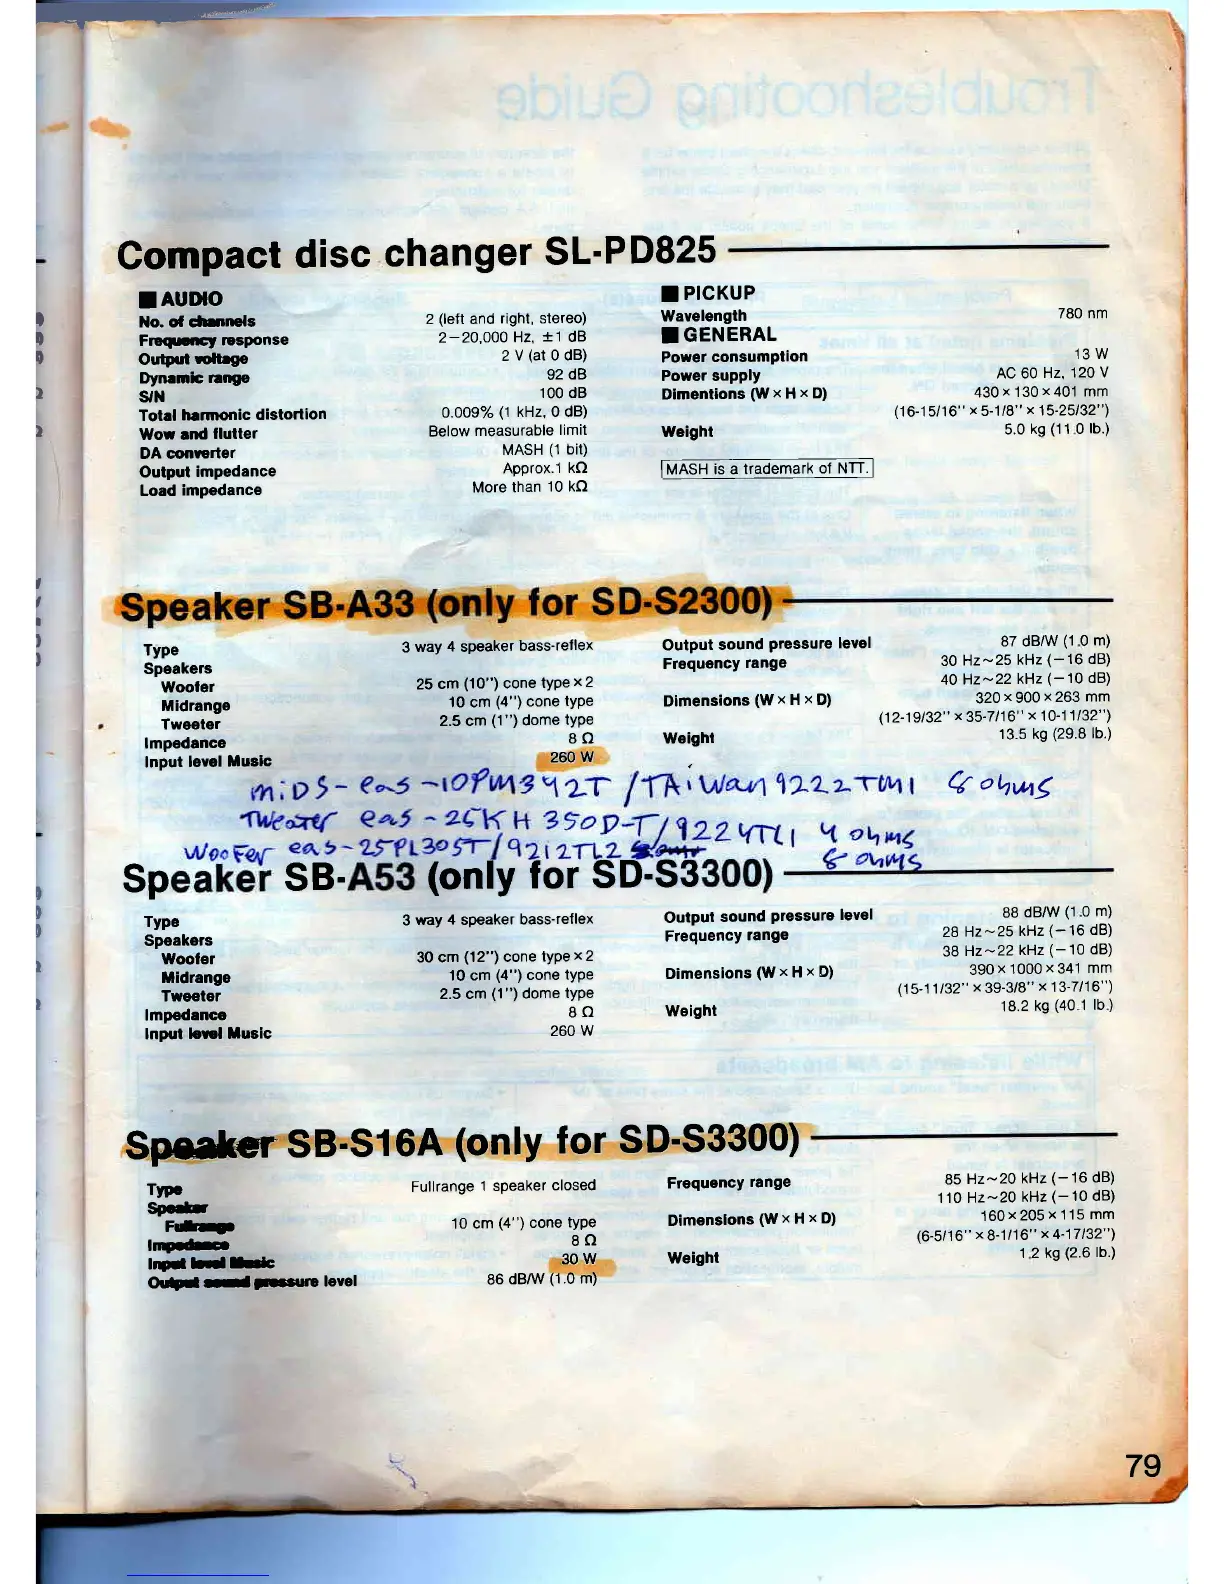 Compact disc changer SL-PD825
■ AUDIO
No. of channels 2 (left and right, stereo)
Frequency response 2—20,000 Hz, ±1 dB
Output voltage 2 V (at 0 dB)
Dynamic range 92 dB
S/N 100 dB
Total harmonic distortion 0.009% (1 kHz, 0 dB)
Wow and flutter Below measurable limit
DA converter MASH (1 bit)
Output impedance Approx.1 kΩ
Load impedance More than 10 kΩ
■ PICKUP
Wavelength 780 nm
■ GENERAL
Power consumption 13 W
Power supply AC 60 Hz, 120 V
Dimentions (W x H x D) 430 x 130 x 401 mm
(16-15/16" x 5-1/8" x 15-25/32")
Weight 5.0 kg (11.0 lb.)
MASH is a trademark of NTT.
Speaker SB-A33 (only for SD-S2300)
Type 3 way 4 speaker bass-reflex
Speakers
Woofer 25 cm (10") cone type x 2
Midrange 10 cm (4") cone type
Tweeter 2.5 cm (1") dome type
Impedance 8 Ω
Input level Music 260 W
Output sound pressure level 87 dB/W (1.0 m)
Frequency range 30 Hz~25 kHz (−16 dB)
40 Hz~22 kHz (−10 dB)
Dimensions (W x H x D) 320 x 900 x 263 mm
(12-19/32" x 35-7/16" x 10-11/32")
Weight 13.5 kg (29.8 lb.)
MiDS- eas -10PM342T /TAiWan 9222TM1 8 ohms
Tweater eas - 25KH 350D-T/9224TL1 4 ohms
Woofer eas - 25PL305T/9212TL2 8 ohms
Speaker SB-A53 (only for SD-S3300)
Type 3 way 4 speaker bass-reflex
Speakers
Woofer 30 cm (12") cone type x 2
Midrange 10 cm (4") cone type
Tweeter 2.5 cm (1") dome type
Impedance 8 Ω
Input level Music 260 W
Output sound pressure level 88 dB/W (1.0 m)
Frequency range 28 Hz~25 kHz (−16 dB)
38 Hz~22 kHz (−10 dB)
Dimensions (W x H x D) 390 x 1000 x 341 mm
(15-11/32" x 39-3/8" x 13-7/16")
Weight 18.2 kg (40.1 lb.)
Speaker SB-S16A (only for SD-S3300)
Type Fullrange 1 speaker closed
Speaker
Fullrange 10 cm (4") cone type
Impedance 8 Ω
Input level Music 30 W
Output sound pressure level 86 dB/W (1.0 m)
Frequency range 85 Hz~20 kHz (−16 dB)
110 Hz~20 kHz (−10 dB)
Dimensions (W x H x D) 160 x 205 x 115 mm
(6-5/16" x 8-1/16" x 4-17/32")
Weight 1.2 kg (2.6 lb.)
79